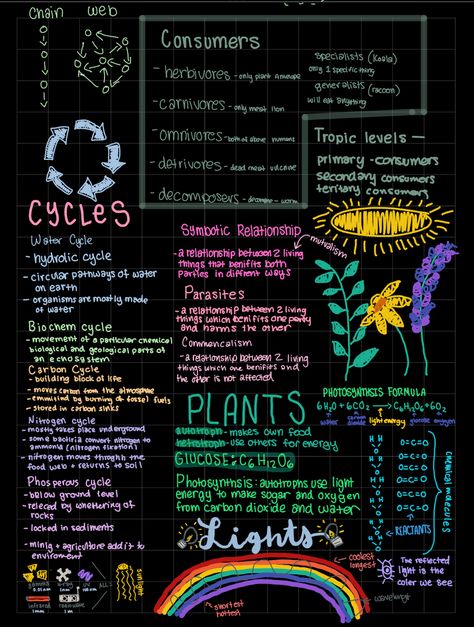 Chain web
Consumers
- herbivores - only plant
- carnivores - only meat lion
- omnivores - both of above humans
- detrivores - dead meat vulcrine
- decomposers - worm
specialists (koala)
only 1 specific thing
generalists (raccon)
will eat anything
Tropic levels -
primary - consumers
secondary consumers
tertiary consumers
CYCLES
Water Cycle
- hydrolic cycle
- circular pathways of water
on earth
- organisms are mostly made
of water
Biochem cycle
- movement of a particular chemical
biological and geological parts of
an echosystem
Carbon Cycle
- building block of life
- moves carbon from the atmosphere
- emmitted by burning of fossel fuels
- stored in carbon sinks
Nitrogen cycle
- mostly takes place underground
- some bactiria convert nitrogen to
ammonia (nitrogen fixation)
- nitrogen moves through the
food web + returns to soil
Phosperous cycle
- below ground level
- releced by whethering of
rocks
- locked in sediments
- minig + agriculture add it to
enviroment
Symbotic Relationship
mutalism
- a relationship between 2 living
things that benifits both
parties in diffrent ways
Parasites
- a relationship between 2 living
things which benifits one party
and harms the other
Commencalism
- a relationship between 2 living
things which one benifits and
the other is not affected
PLANTS
autotroph - makes own food
hetrotroph - use others for energy
GLUCOSE: C6H12O6
Photosynthesis: autotrophs use light
energy to make sogar and oxygen
from carbon dioxide and water
PHOTOSYNTHSIS FORMULA
6H2O + 6CO2 → C6H12O6 + 6O2
water carbon dioxide light energy glucose oxygen
O=C=O
O=C=O
O=C=O
O=C=O
O=C=O
O=C=O
REACTANTS
chemical molecules
Lights
coolest
longest
shortest
hottest
The reflected
light is the
color we see
gamma x-rays uv
0.01nm 1nm 100nm
infrared radio wave
1mm 1m
ALL:
sunlight